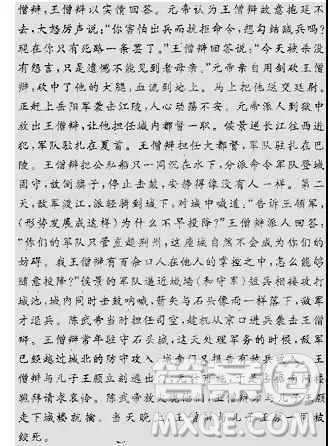 僧辩,王僧辩以实情回答。元帝认为王僧辩故意拖延不
去,大怒厉声说:“你害怕出兵而抗拒命令,想勾结贼兵吗?
现在你只有死路一条罢了。”王僧辩回答说:“今天被杀没
有怨言,只是遗憾不能见到老母亲。”元帝亲自用剑砍王僧
辩,砍中了他的大腿,血流到地上。马上把他送交廷尉。
正赶上岳阳军袭击江陵,人心动荡不安。元帝派人到狱中
放出王僧辩,让他担任城内都督一职。侯景逆长江往西进
犯,军队驻扎在夏首。王僧辩担任大都督,军队驻扎在巴
陵。王僧辩把公私船只一同沉在水下,分派命令军队登城
固守,放倒旗子,停止击鼓,安静得像没有人一样。第二
天,敌军渡江,派轻骑到城下,对城中喊道:“告诉王领军,
(形势发展成这样)为什么不早投降?”王僧辩派人回答:
“你们的军队只管直趋荆州,这座城自然不会成为你们的
妨碍。我王僧辩有百余口人在他人的掌控之中,怎么能够
随意投降?”侯景的军队逼近城墙(和守军)短兵相接攻打
城池,城内同时击鼓呐喊,箭矢与石头像雨一样落下,敌军
才退兵。陈武帝当时担任司空,趁机从京口进兵袭击王僧
辩。王僧辩常年驻守石头城,这天处理军务的时候,敌军
已经越过城北的防守攻入
僧辩与儿子王颁立刻逃出
跪拜请求哀怜。陈武帝放火
走下城楼就擒。当天晚上
绞死。